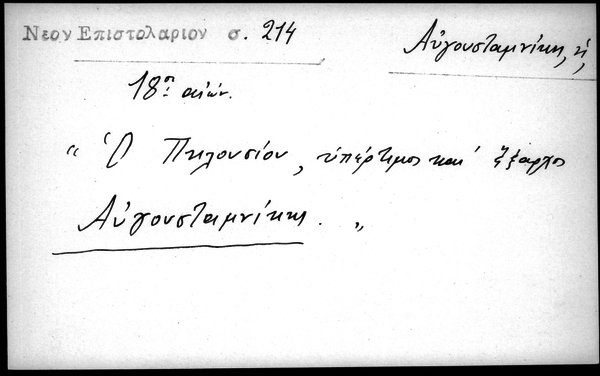 Νεον Επιστολαριον σ. 214
Αὐγουσταμνίκη, ἡ,
18η αἰών.
"Ὁ Πηλουσίου, ὑπέρτιμος καὶ ἔξαρχος
Αὐγουσταμνίκης."